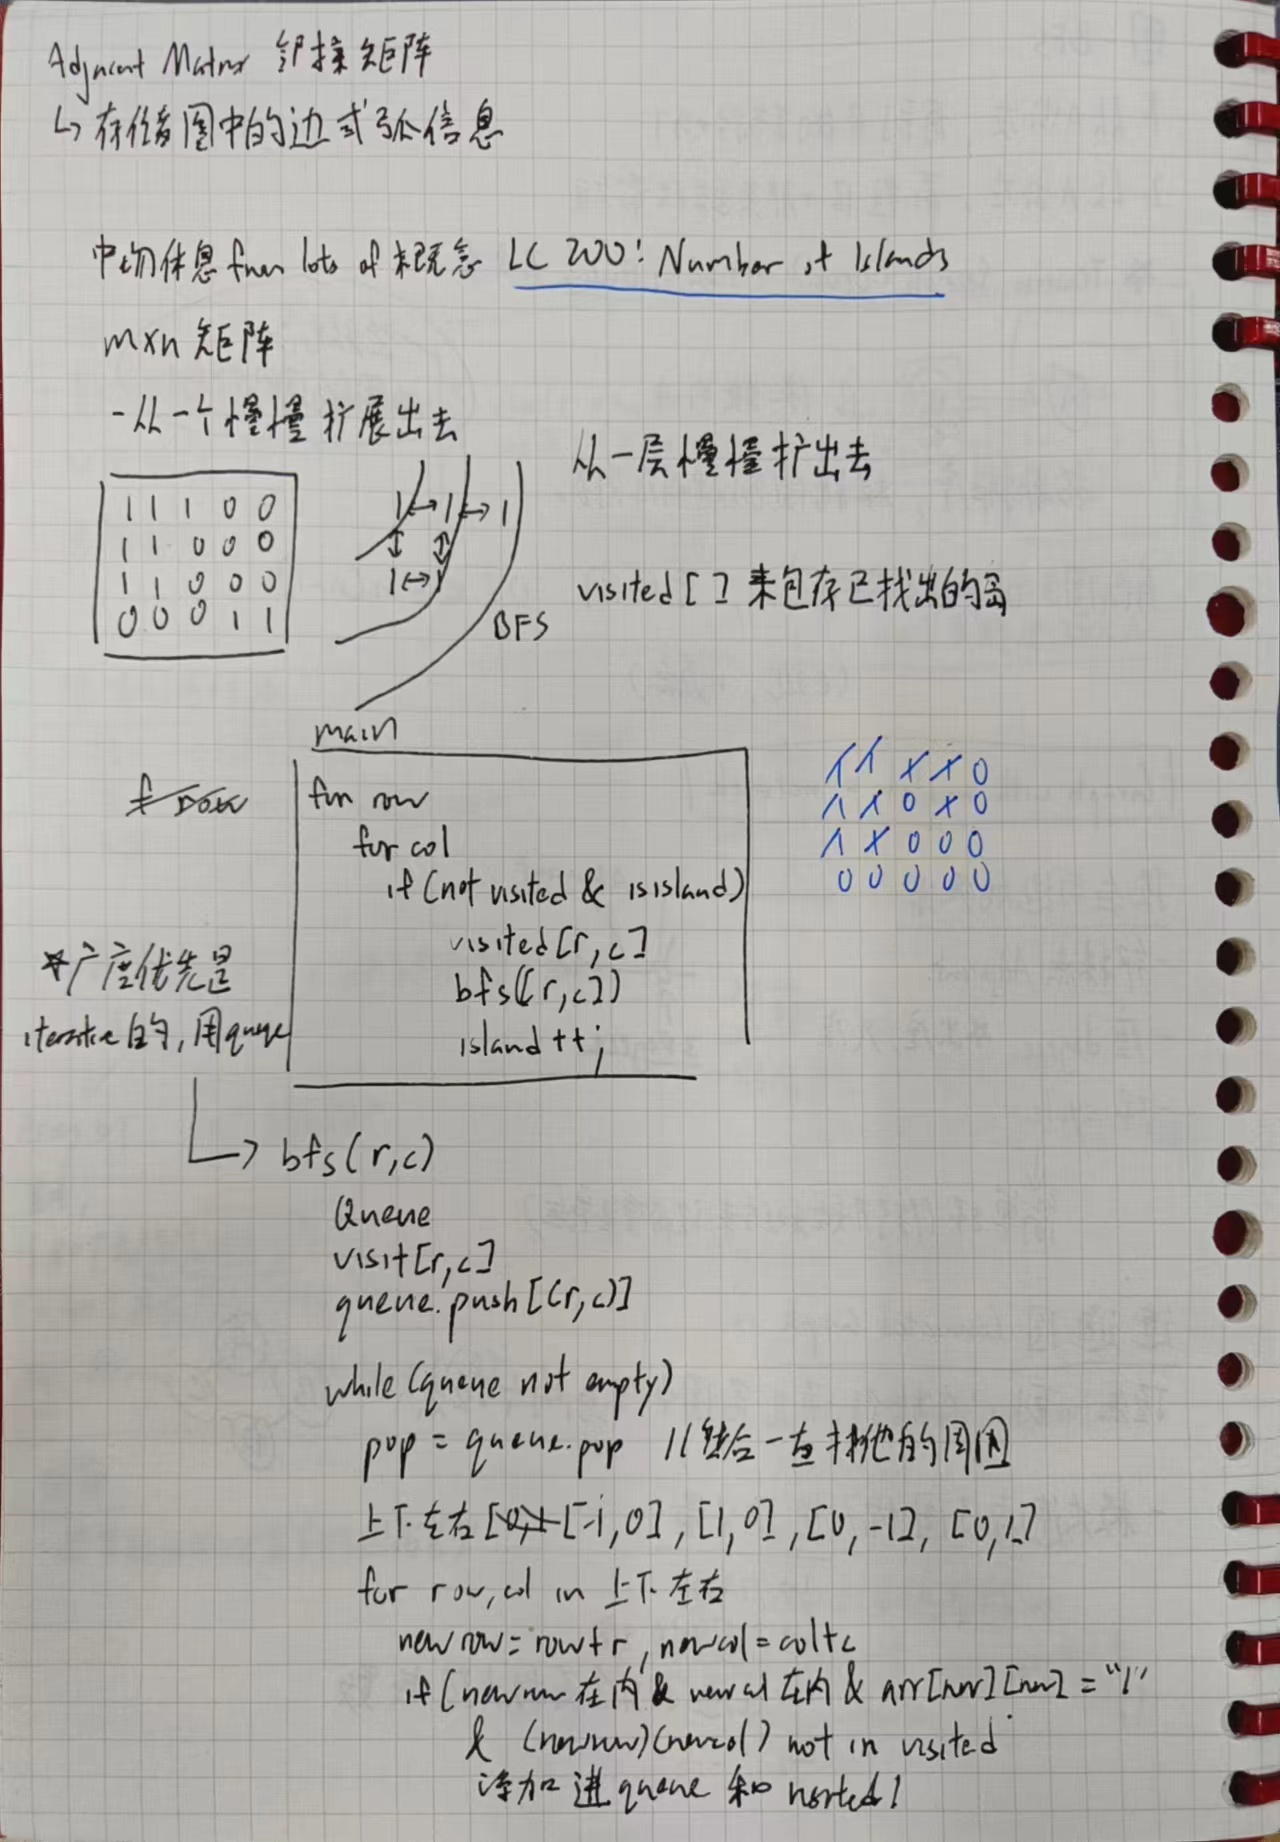 Adjacent Matrix 邻接矩阵
↳ 存储图中的边或弧信息
中场休息 from lots of 概念 LC 200: Number of Islands
mxn 矩阵
- 从一个慢慢扩展出去
从一层慢慢扩出去
1 1 1 0 0
1 1 0 0 0
1 1 0 0 0
0 0 0 1 1
1 ↔ 1 ↔ 1
↕ ↕
1 ↔ 1
BFS
visited [ ] 来包存已找出的岛
main
for row
for col
if (not visited & isisland)
visited [r, c]
bfs([r, c])
island ++;
1 1 1 1 0
1 1 0 1 0
1 1 0 0 0
0 0 0 0 0
* 广度优先是
iterative 的, 用queue
→ bfs(r, c)
Queue
visit [r, c]
queue.push [(r, c)]
while (queue not empty)
pop = queue.pop // 然后一直找他的周围
上下左右 [-1, 0], [1, 0], [0, -1], [0, 1]
for row, col in 上下左右
new row = row + r, newcol = col + c
if (newrow 在内 & newcol 在内 & arr[nr][nc] = "1"
& (newrow)(newcol) not in visited
添加进 queue 和 visited!